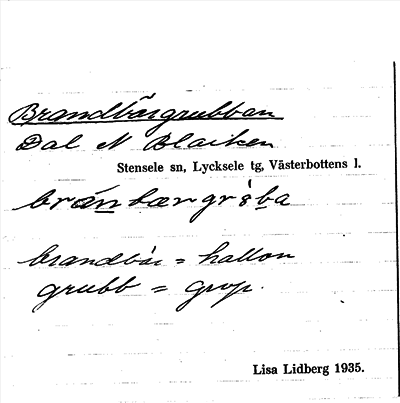 Brandbärgrubban
Dal N Blaiken
Stensele sn, Lycksele tg, Västerbottens l.
brandbär = hallon
grubb = grop.
Lisa Lidberg 1935.